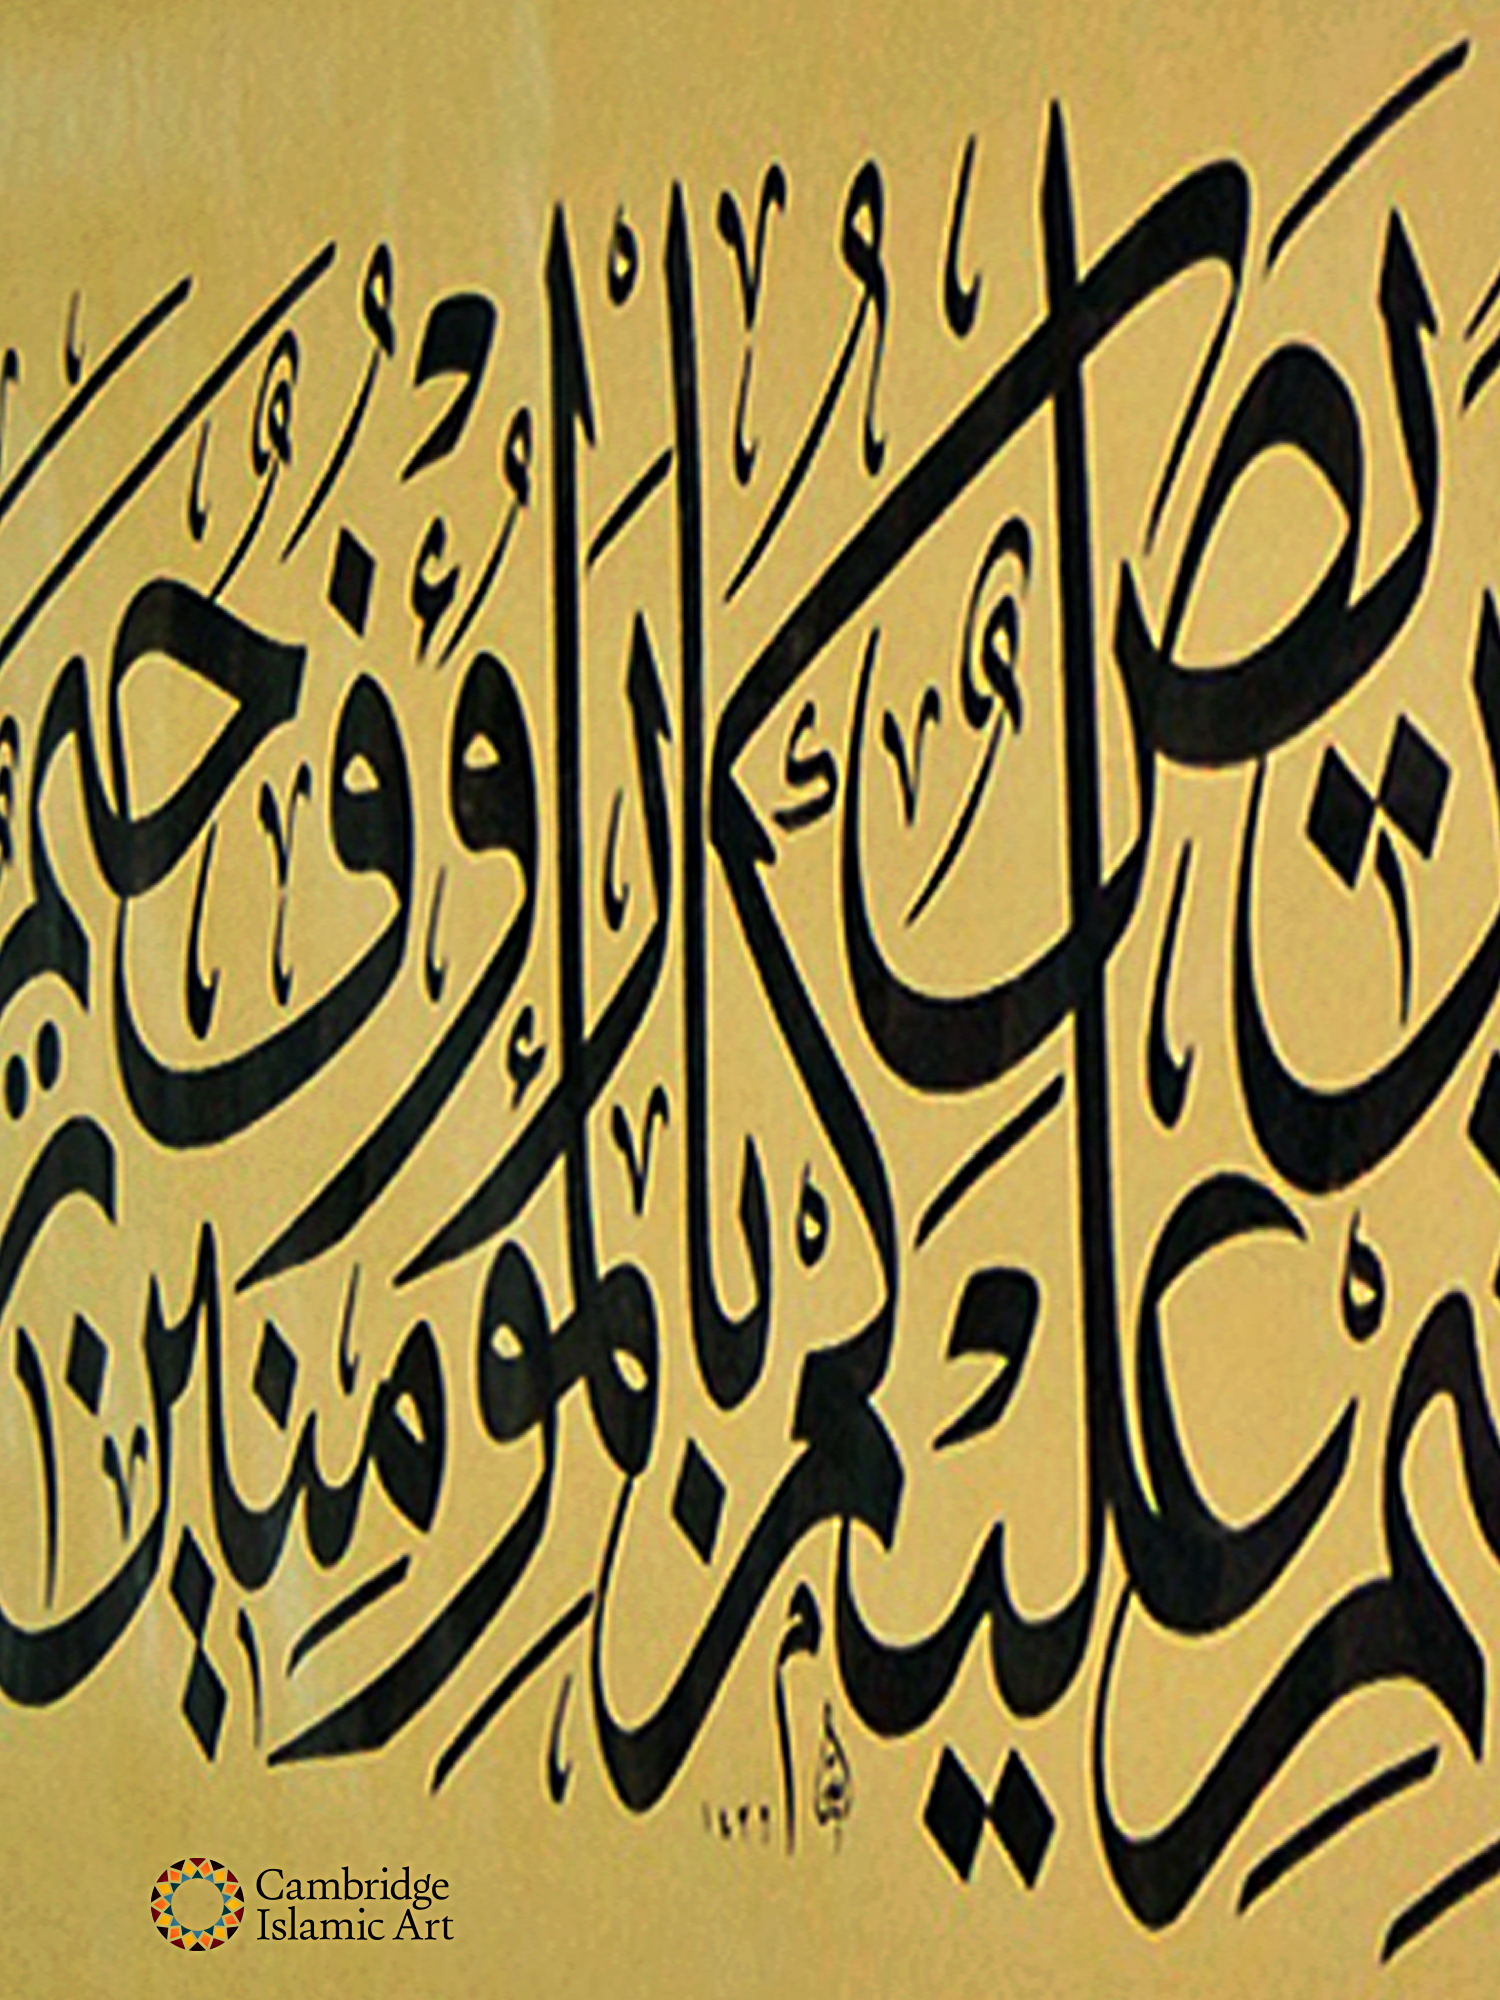 عَلَيْكُم بِالْمُؤْمِنِينَ
رَءُوفٌ رَّحِيمٌ
Cambridge
Islamic Art